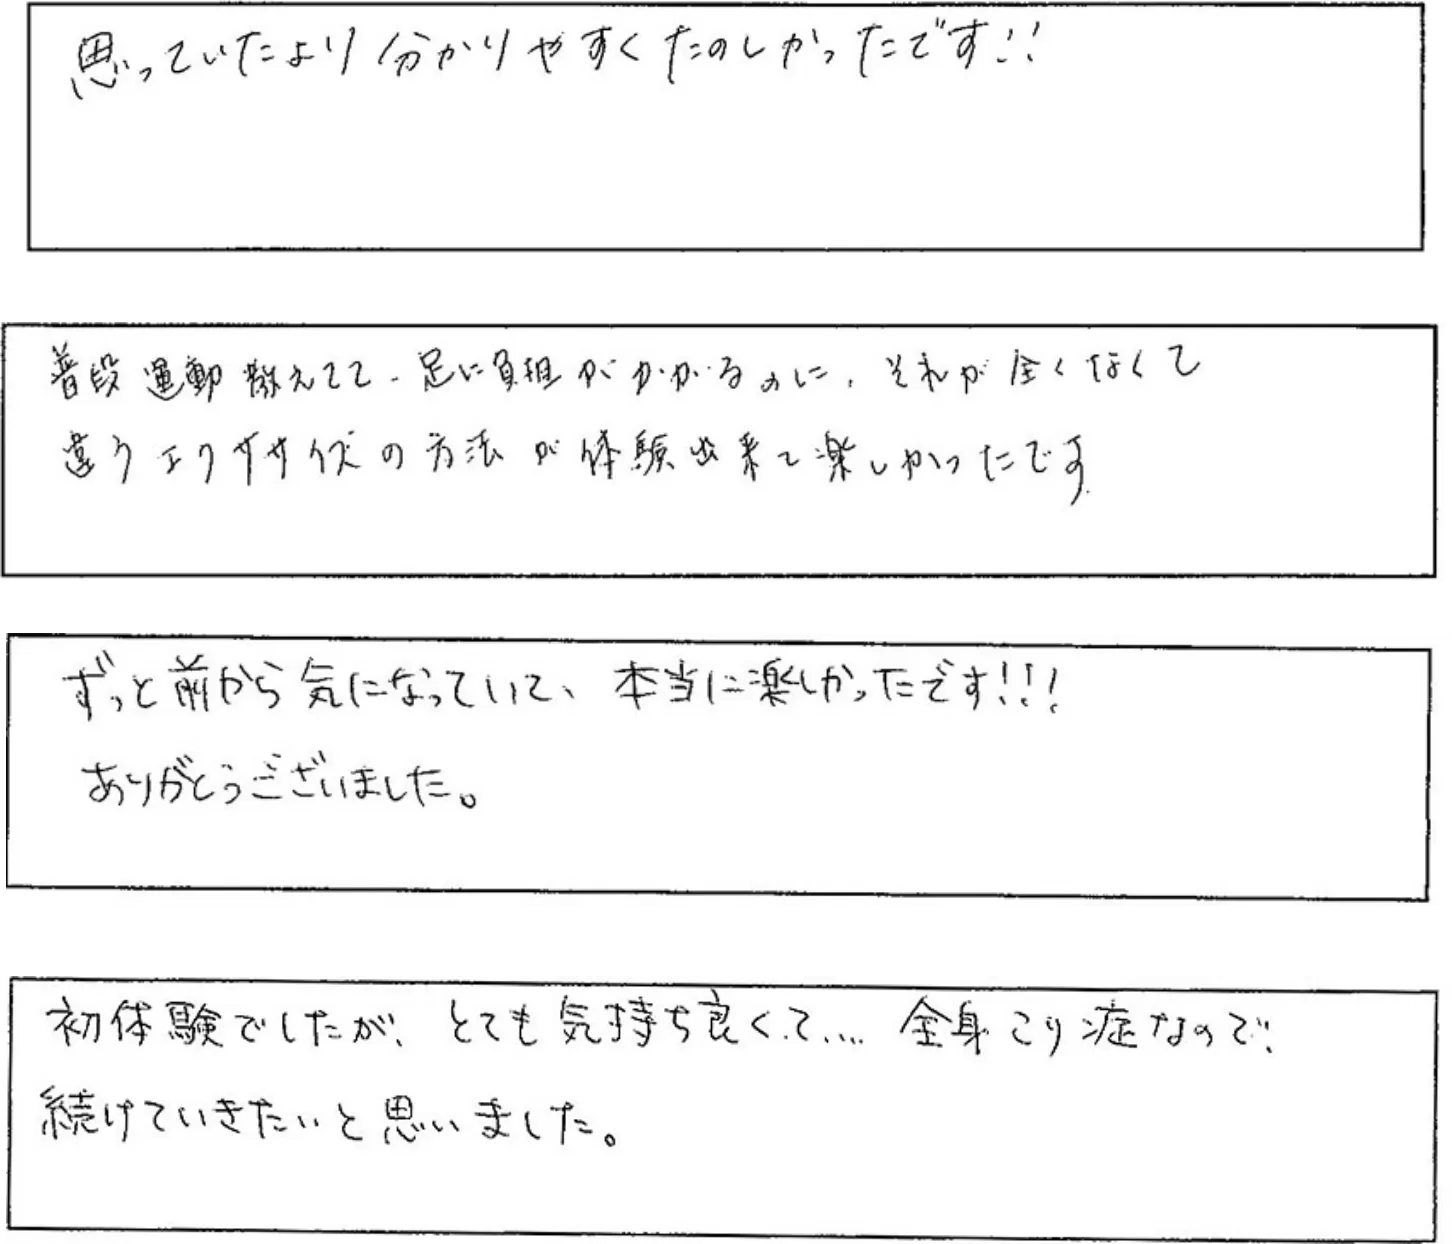 思っていたより分かりやすくたのしかったです!!
普段運動教えてて、足に負担がかかるのに、それが全くなくて
違うエクササイズの方法が体験出来て楽しかったです
ずっと前から気になっていて、本当に楽しかったです!!!
ありがとうございました。
初体験でしたが、とても気持ち良くて.... 全身こり症なので、
続けていきたいと思いました。